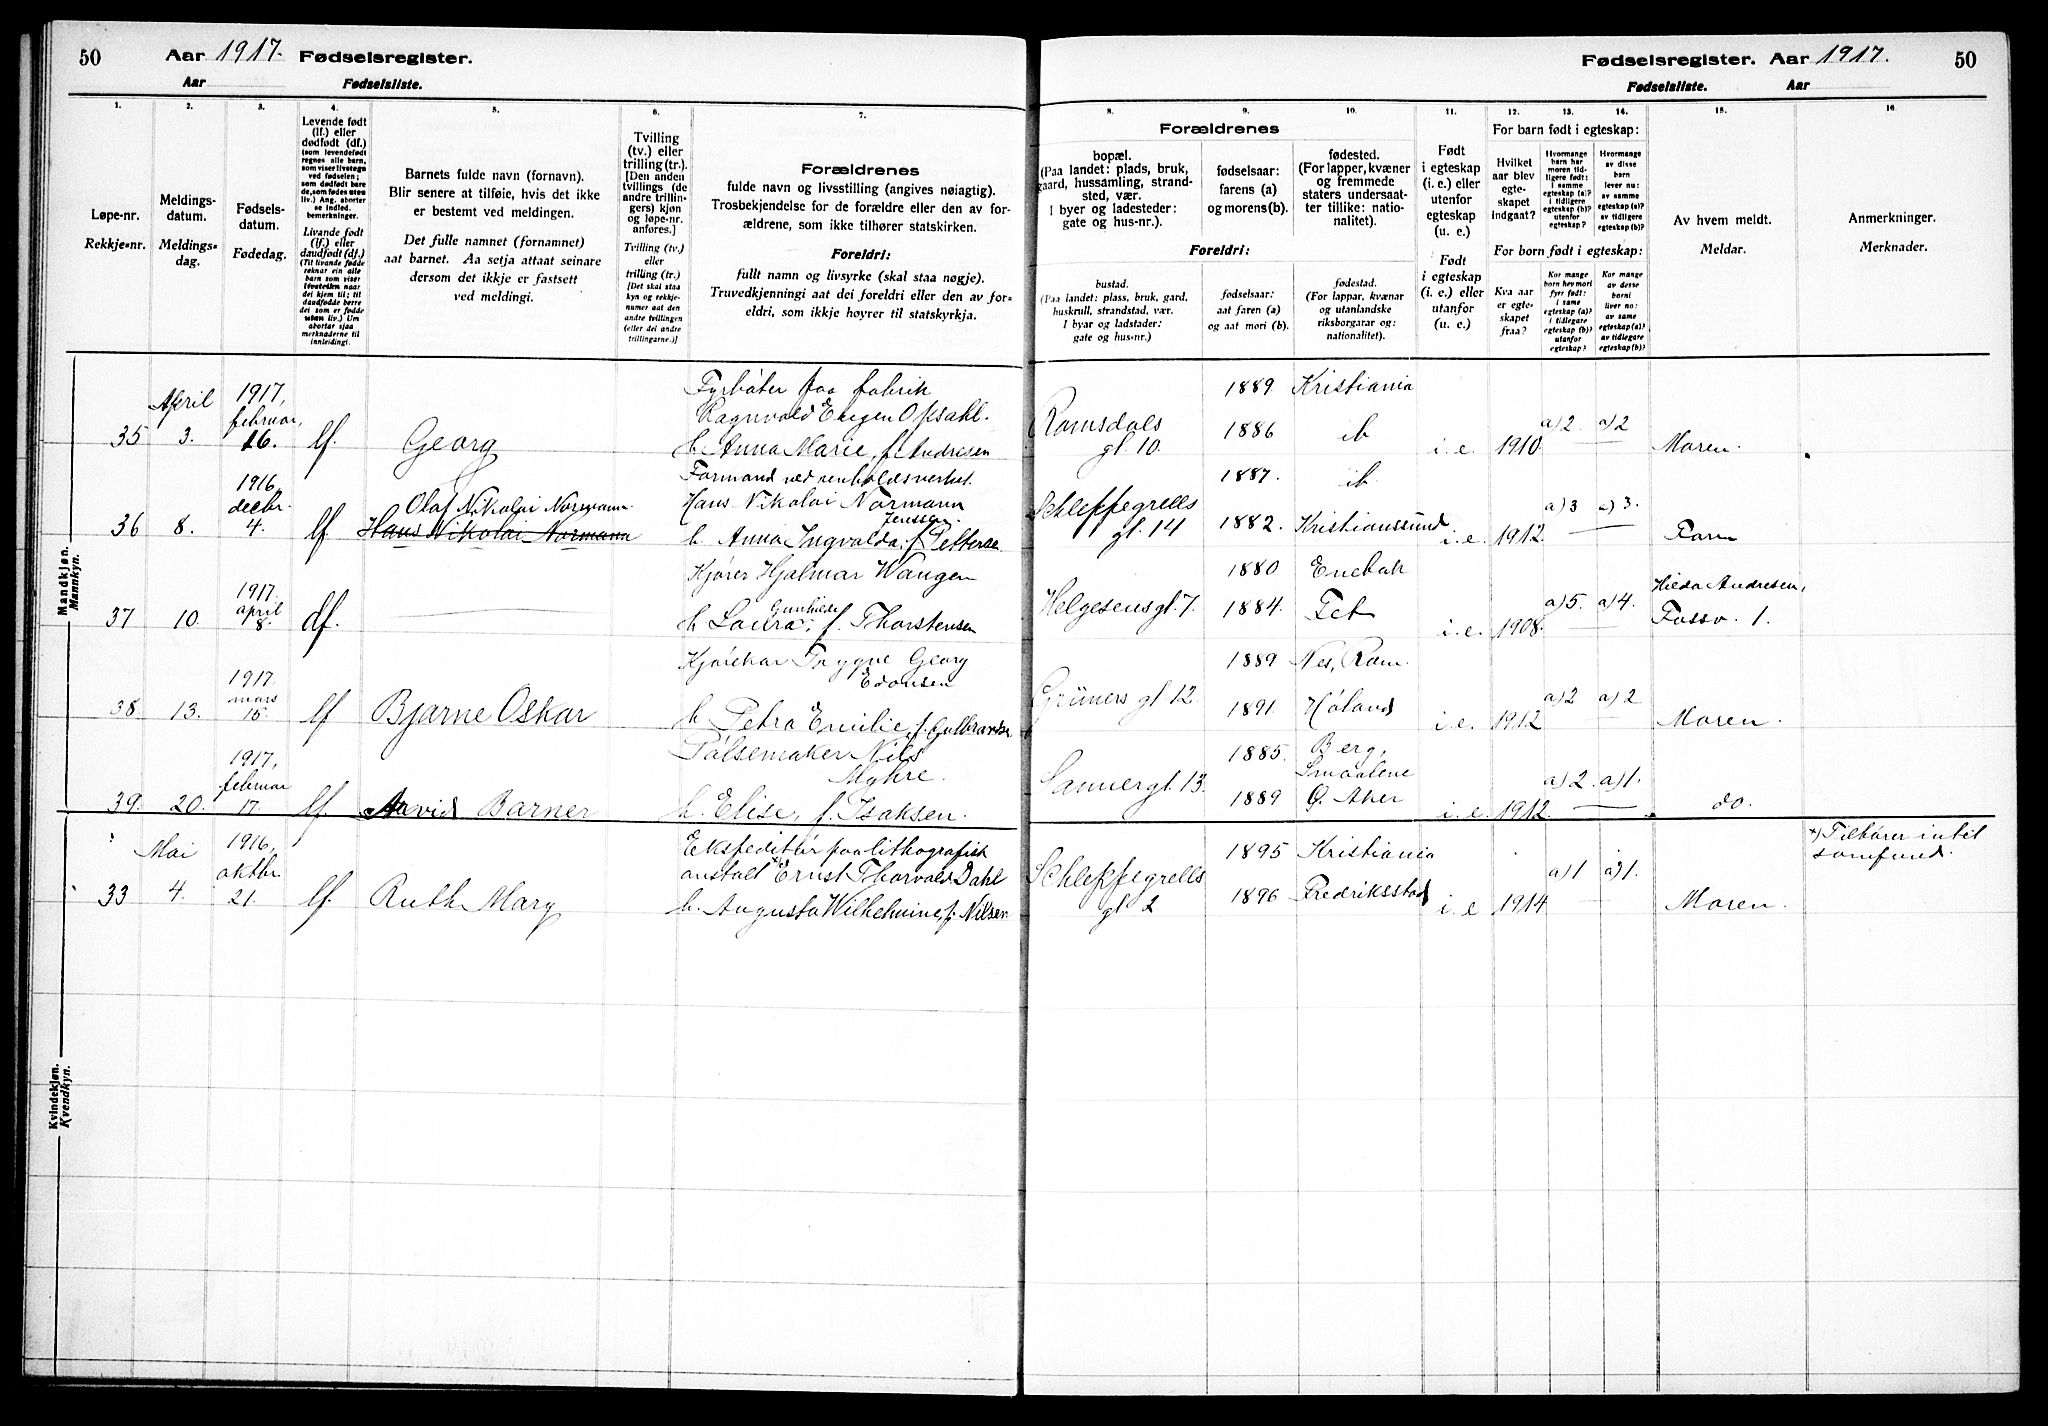 50 Aar 1917. Fødselsregister.
Aar Fødselsliste.
Fødselsregister. Aar 1917. 50
Fødselsliste. Aar
1. 2. 3. 4. 5. 6. 7.
Løpe-nr.
Rekkje-nr.
Meldings-
datum.
Meldings-
dag.
Fødsels-
datum.
Fødedag.
Levende født
(lf.) eller
dødfødt (df.)
Livande født
(lf.) eller
daudfødt (df.)
Barnets fulde navn (fornavn).
Blir senere at tilføie, hvis det ikke
er bestemt ved meldingen.
Det fulle namnet (fornamnet)
aat barnet. Aa setja attaat seinare
dersom det ikkje er fastsett
ved meldingi.
Tvilling
(tv.) eller
trilling (tr.)
[Den anden
tvillings (de
andre trillin-
gers) kjøn
og løpe-nr.
anføres.]
Tvilling (tv.)
eller
trilling (tr.)
[Det skal staa
kyn og rekkje-
numer aat den
andre tvillingen
(eller dei andre
trillingarne.)]
Forældrenes
fulde navn og livsstilling (angives nøiagtig).
Trosbekjendelse for de forældre eller den av for-
ældrene, som ikke tilhører statskirken.
Foreldri:
fullt namn og livsyrke (skal staa nøgje).
Truvedkjenningi aat dei foreldri eller den av for-
eldri, som ikkje høyrer til statskyrkja.
8. 9. 10. 11. 12. 13. 14. 15. 16.
Forældrenes
bopæl.
(Paa landet: plads, bruk,
gaard, hussamling, strand-
sted, vær.
I byer og ladesteder:
gate og hus-nr.).
fødselsaar:
farens (a)
og morens (b).
fødested.
(For lapper, kvæner
og fremmede
staters undersaat-
ter tillike: natio-
nalitet).
Foreldri:
bustad.
(Paa landet: plass, bruk, gard,
huskrull, strandstad, vær.
I byar og ladstader:
gate og hus-nr.)
fødselsaar:
aat faren (a)
og aat mori (b).
fødestad.
(For lappar, kvænar
og utanlandske
riksborgarar og:
nationalitet).
Født
i egteskap
(i. e.) eller
utenfor
egteskap
(u. e.)
Født
i egteskap
(i. e.) eller
utanfor
(u. e.)
For barn født i egteskap:
Hvilket
aar blev
egte-
skapet
indgaat?
Hvormange
barn har
moren tid-
ligere født:
i samme
egteskap (a)?
i tidligere
egteskap (b)?
utenfor
egteskap?
Hvormange
av disse
barn
lever nu:
av samme
egteskap (a)?
av tidligere
egteskap (b)?
For born født i egteskap:
Kva aar
er egte-
skapet
fraa?
Kor mange
born hev mori
fyrr født:
i same
egteskap (a)?
i tidlegare
egteskap (b)?
utanfor
egteskap?
Kor mange
av desse
borni
liver no:
av same
egteskap (a)?
av tidlegare
egteskap (b)?
Av hvem meldt.
Meldar.
Anmerkninger.
Merknader.
Mandkjøn.
Mannkyn.
35 April 3. 1917, februar, 16. lf. Georg
Fyrbøter paa fabrik
Ragnvald Eugen Opsahl.
h. Anna Marie, f. Andresen
Romsdals
gt. 10.
1889 Kristiania
1886 ib
i. e. 1910. a) 2. a) 2 Moren.
36 8. 1916 decbr. 4. lf. Olaf Nikolai Normann
Hans Nikolai Normann
Formand ved renholdsverket.
Hans Nikolai Normann
Jenssen.
h. Anna Ingvalda, f. Petterse
Schleppegrells
gt. 14
1887. ib.
1882. Kristianssund
i. e. 1912. a) 3 a) 3. Faren
37 10. 1917. april 8. df.
Kjører Hjalmar Wangen
h Laura Gunhilde, f. Thorstensen
Helgesens gt. 7.
1880 Enebak
1884. Fet
i. e. 1908. a) 5. a) 4. Hilda Andresen,
Fossv. 1.
38 13. 1917 mars 15. lf Bjarne Oskar
Kjørekar Trygve Georg
Edonsen
h Petra Emilie, f. Gulbrandse
Grüners gt 12.
1889 Nes, Rom.
1891 Høland
i. e. 1912 a) 2 a) 2 Moren.
39. 20. 1917, februar 17. lf. Arvid Barner
Pølsemaker Nils
Myhre.
h. Elise, f. Isaksen.
Sannergt. 13.
1885. Berg,
Smaalene
1889 Ø. Aker
i. e. 1912. a) 2. a) 1. do.
Kvindekjøn.
Kvendkyn.
33 Mai 4. 1916, oktbr. 21. lf. Ruth Mary
Ekspeditør paa lithografisk
anstalt x) Ernst Thorvald Dahl
h. Augusta Wilhelmine, f. Nilsen
Schleppegrells
gt 2
1895 Kristiania
1896 Fredriksstad
i. e 1914 a) 1 a) 1. Moren.
x) Tilhører intet
samfund.